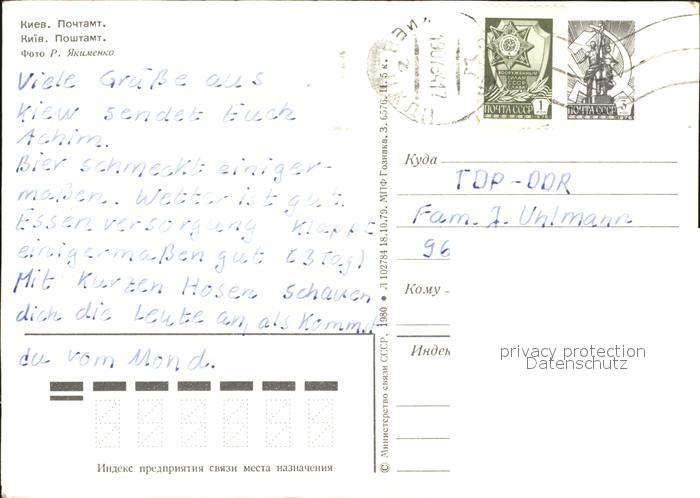 Киев. Почтамт.
Київ. Поштамт.
Фото Р. Якименко
Viele Grüße aus
Kiew sendet Euch
Achim.
Bier schmeckt einiger-
maßen. Wetter ist gut.
Essenversorgung klappt
einigermaßen gut (3 Tag)
Mit kurzen Hosen schauen
dich die Leute an, als kommst
du vom Mond.
Индекс предприятия связи места назначения
© Министерство связи СССР, 1980 ● Л 102784 18.10.79. МПФ Гознака. З. 6576. Ц. 5 к.
ВООРУЖЕННЫЕ
СИЛЫ
СССР
1
ПОЧТА СССР
ПОЧТА СССР
3
1976
Куда
ГДР-DDR
Fam. J. Uhlmann
96
Кому
Индек
privacy protection
Datenschutz